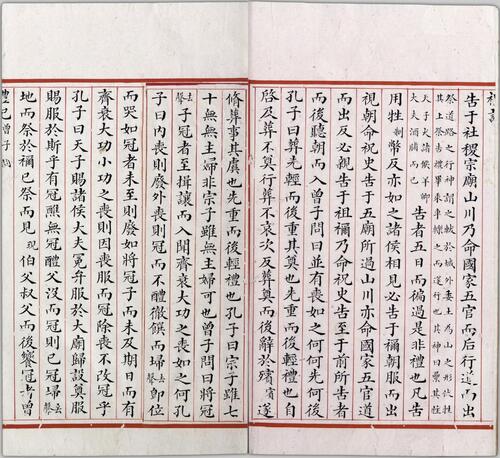 禮記
告于社稷宗廟山川乃命國家五官而后行道而出
祭道路之行神謂之軷於城外委土為山之形伏牲
其上祭告禮畢乘車轢之而遂行也其神曰纍其牲
天子犬諸侯羊卿大夫酒脯而已告者五日而徧過是非也凡告
用牲制幣反亦如之諸侯相見必告于禰朝服而出
視朝命祝史告于五廟所過山川亦命國家五官道
而出反必親告于祖禰乃命祝史告至于前所告者
而後聽朝而入曾子問曰並有喪如之何何先何後
孔子曰葬先輕而後重其奠也先重而後輕禮也自
啓及葬不奠行葬不哀次反葬奠而後辭於殯賓遂
脩葬事其虞也先重而後輕禮也孔子曰宗子雖七
十無無主婦非宗子雖無主婦可也曾子問曰將冠
去聲子冠者至揖讓而入聞齊衰大功之喪如之何孔
子曰內喪則廢外喪則冠而不醴徹饌而埽去聲即位
而哭如冠者未至則廢如將冠子而未及期日而有
齊衰大功小功之喪則因喪服而冠除喪不改冠乎
孔子曰天子賜諸侯大夫冕弁服於大廟歸設奠服
賜服於斯乎有冠醮無冠醴父沒而冠則已冠埽去聲
地而祭於禰已祭而見現伯父叔父而後饗冠者曾
禮記曾子問